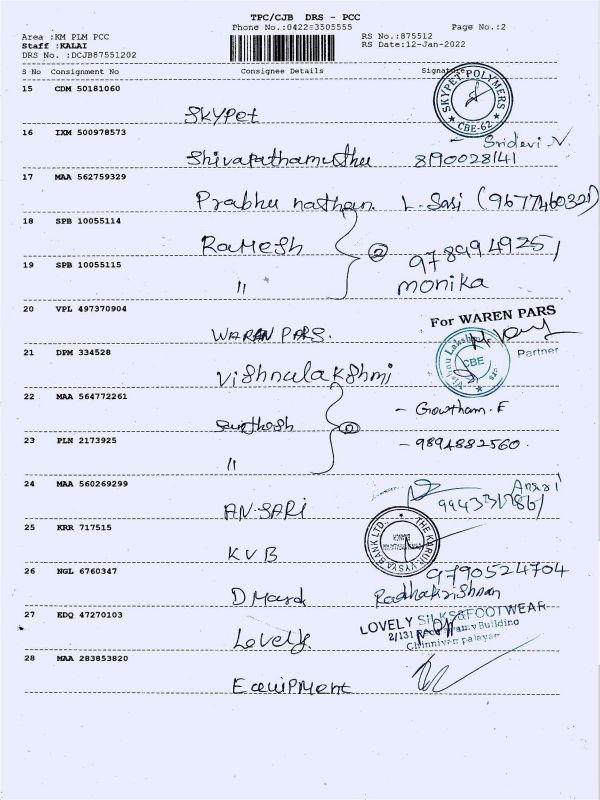 TPC/CJB DRS - PCC
Phone No.:0422=3505555 Page No.:2
Area :KM PLM PCC RS No.:875512
Staff :KALAI RS Date:12-Jan-2022
DRS No. :DCJB87551202
S No Consignment No Consignee Details Signature
15 CDM 50181060
SKYPET SKYPET POLYMERS CBE-62
16 IXM 500978573 Sridevi N
Shivapathamuthu 8190028141
17 MAA 562759329
Prabhu nathan. L. Sasi (9677460321)
18 SPB 10055114
RAMESH 2 9789949251
19 SPB 10055115
" monika
20 VPL 497370904
WARAN PARS. For WAREN PARS
21 DPM 334528 Partner
Vishnulakshmi CBE
22 MAA 564772261
Santhosh 2 - Gowtham. E
23 PLN 2173925
" - 9894882560.
24 MAA 560269299
AN-SARI Ansari
25 KRR 717515
KVB THE KARUR VYSYA BANK LTD.,
26 NGL 6760347 9790524704
D Mard Radhakrishnan
27 EDQ 47270103
Lovely. LOVELY SILKS&FOOTWEAR
2/131 Building
Chinniyampalayam
28 MAA 283853820
Equipment